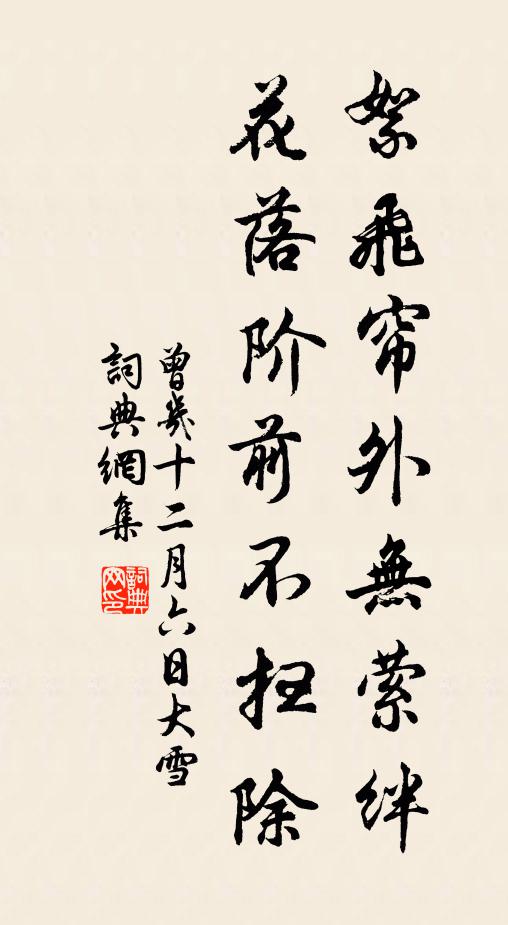 絮飛帘外無萦絆
花落阶前不扫除
曾幾十二月六日大雪
詞典網集
詞典网印